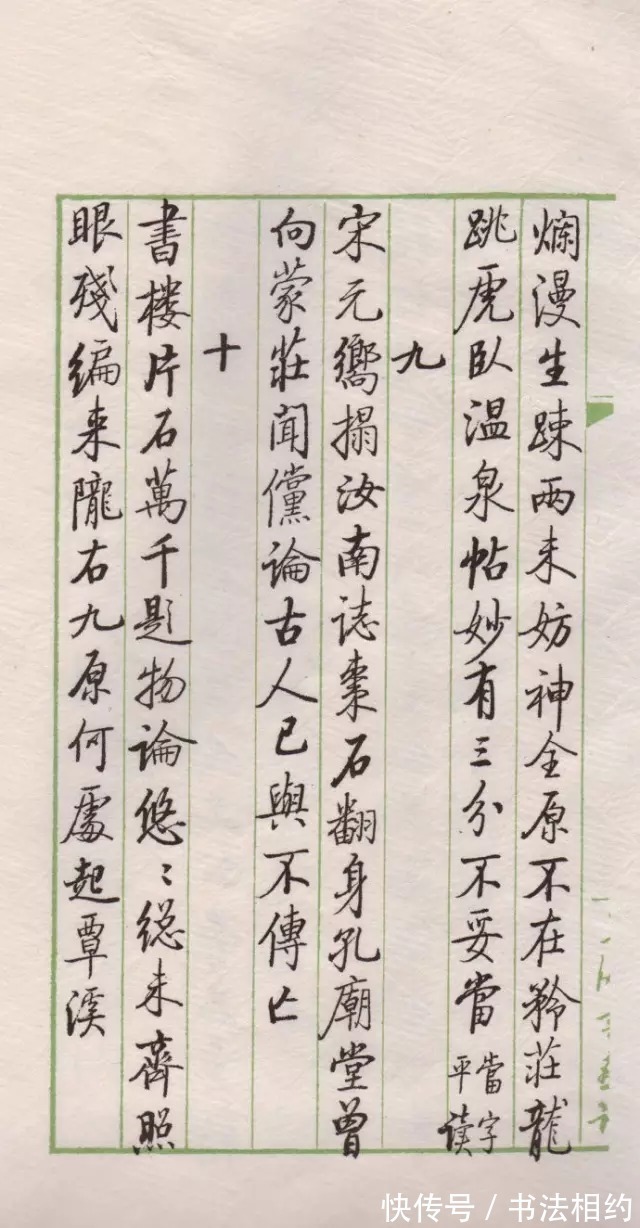 爛漫生踈两未妨神全原不在矜莊龍
跳虎臥温泉帖妙有三分不妥當
當字
平读
九
宋元嚮搨汝南誌棗石翻身孔廟堂曾
向蒙莊聞儻論古人已與不傳亡
十
書楼片石萬千题物論悠〻総未齊照
眼殘编来隴右九原何處起覃溪
快传号 / 书法相约